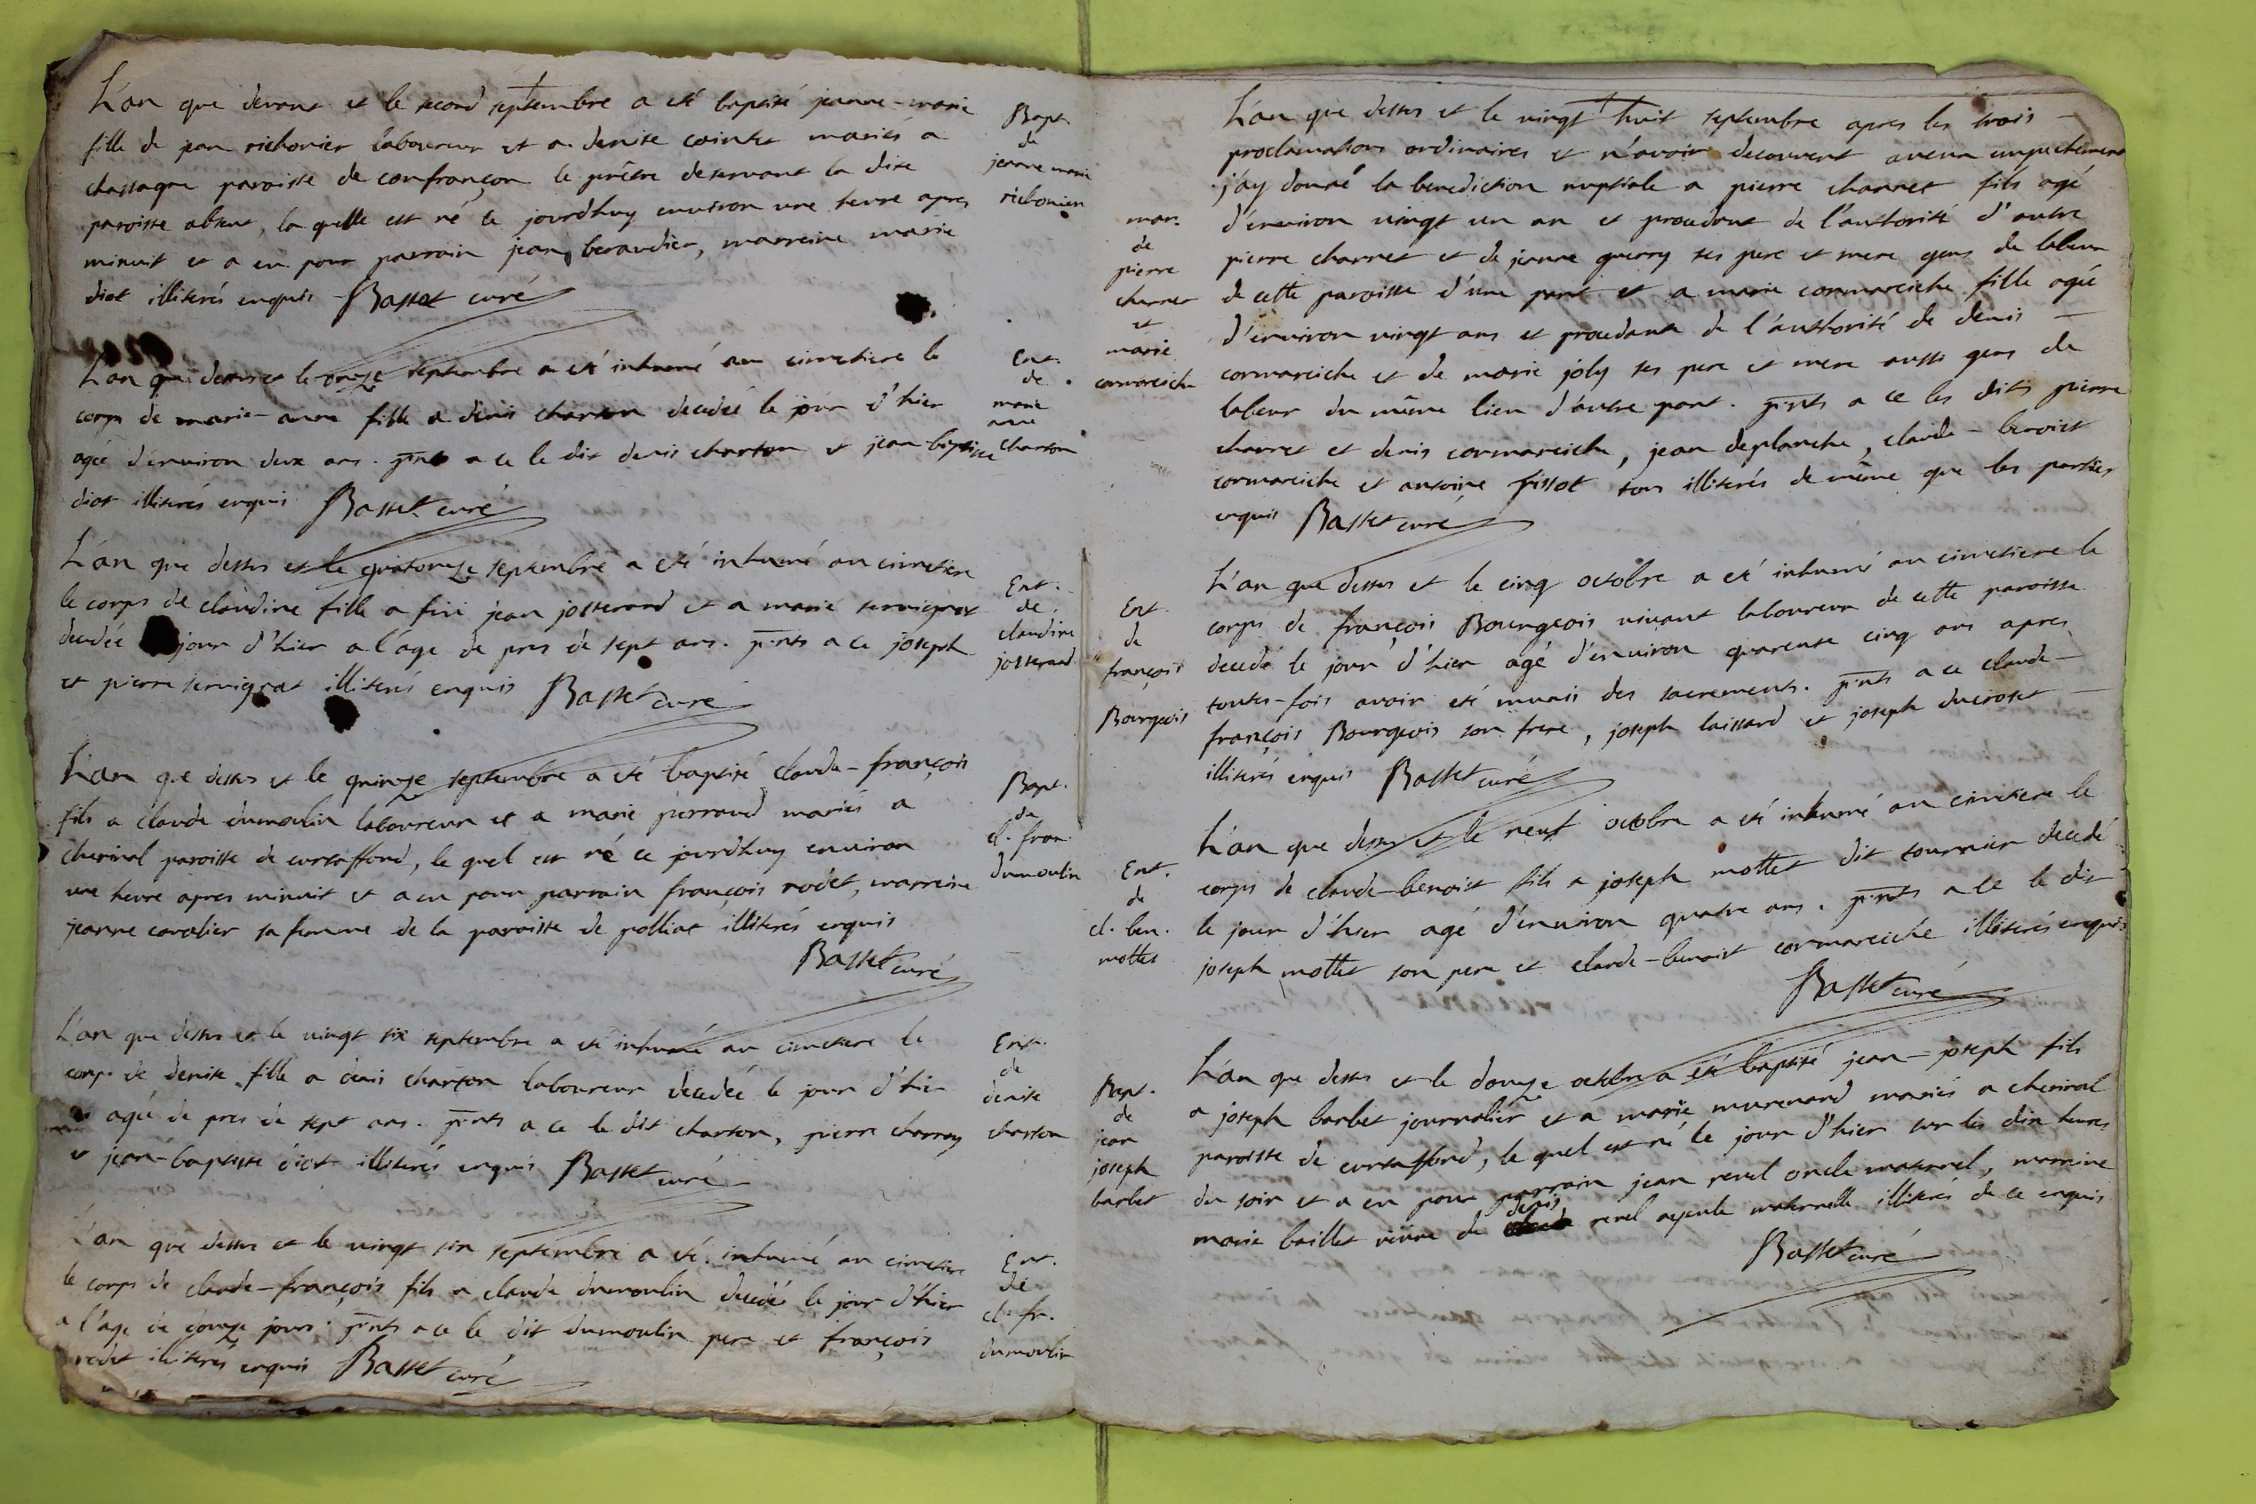 L'an que devant et le second septembre a eté baptisé jeanne-marie
fille de jean richonier laboureur et a denise cointet mariés a
chassagne paroisse de confrançon le prêtre deservant la dite
paroisse absent, la quelle est né ce jourdhuy environ une heure apres
minuit et a eu pour parrain jean beraudier, marreine marie
diot illiterés enquis Basset curé
Bapt.
de
jeanne marie
richonier
L'an que dessus et le onze septembre a eté inhumé au cimetiere le
corps de marie-anne fille a denis charton decedée le jour d'hier
agée d'environ deux ans. pnts a ce le dit denis charton et jean-baptiste
diot illiterés enquis Basset curé
Ent.
de
marie
anne
charton
L'an que dessus et le quatorze septembre a eté inhumé au cimetiere
le corps de claudine fille a feu jean josserand et a marie servignat
decedée jour d'hier a l'age de pres de sept ans. pnts a ce joseph
et pierre servignat illiterés enquis Basset curé
Ent.
de
claudine
josserand
L'an que dessus et le quinze septembre a eté baptisé claude-françois
fils a claude dumoulin laboureur et a marie perraud mariés a
cherinal paroisse de curtaffond, le quel est né ce jourdhuy environ
une heure apres minuit et a eu pour parrain françois rodet, marreine
jeanne cavalier sa femme de la paroisse de polliat illiterés enquis
Basset curé
Bapt.
de
cl. fran.
dumoulin
L'an que dessus et le vingt six septembre a eté inhumé au cimetiere le
corps de denise fille a denis charton laboureur decedée le jour d'hier
agée de pres de sept ans. pnts a ce le dit charton, pierre charray
et jean-baptiste diot illiterés enquis Basset curé
Ent.
de
denise
charton
L'an que dessus et le vingt six septembre a eté inhumé au cimetiere
le corps de claude-françois fils a claude dumoulin decedé le jour d'hier
a l'age de douze jours. pnts a ce le dit dumoulin pere et françois
rodet illiterés enquis Basset curé
Ent.
de
cl. fr.
dumoulin
L'an que dessus et le vingt huit septembre apres les trois
proclamations ordinaires et n'avoir decouvert aucun empechement
j'ay donné la benediction nuptiale a pierre charret fils agé
d'environ vingt un an et procedant de l'authorité d'autre
pierre charret et de jeanne guerry ses pere et mere gens de labeur
de cette paroisse d'une part et a marie cormareiche fille agée
d'environ vingt ans et procedant de l'authorité de denis
cormareiche et de marie joly ses pere et mere aussi gens de
labeur du même lieu d'autre part. pnts a ce les dits pierre
charret et denis cormareiche, jean deplanche, claude-benoist
cormareiche et antoine fissot tous illiterés de même que les parties
enquis Basset curé
mar.
de
pierre
charret
et
marie
cormareiche
L'an que dessus et le cinq octobre a eté inhumé au cimetiere le
corps de françois Bourgeois vivant laboureur de cette paroisse
decedé le jour d'hier agé d'environ quarente cinq ans apres
toutes-fois avoir eté muni des sacrements. pnts a ce claude-
françois Bourgeois son frere, joseph laissard et joseph ducroset
illiterés enquis Basset curé
Ent.
de
françois
Bourgeois
L'an que dessus et le neuf octobre a eté inhumé au cimetiere le
corps de claude-benoist fils a joseph mottet dit tournier decedé
le jour d'hier agé d'environ quatre ans. pnts a ce le dit
joseph mottet son pere et claude-benoist cormareiche illiterés enquis
Basset curé
Ent.
de
cl. ben.
mottet
L'an que dessus et le douze octobre a eté baptisé jean-joseph fils
a joseph barbet journalier et a marie murenard mariés a cherinal
paroisse de curtaffond, le quel est né le jour d'hier sur les dix heures
du soir et a eu pour parrain jean revel oncle maternel, marreine
marie baillet veuve de denis revel ayeule maternelle illiterés de ce enquis
Basset curé
Bapt.
de
jean
joseph
barbet